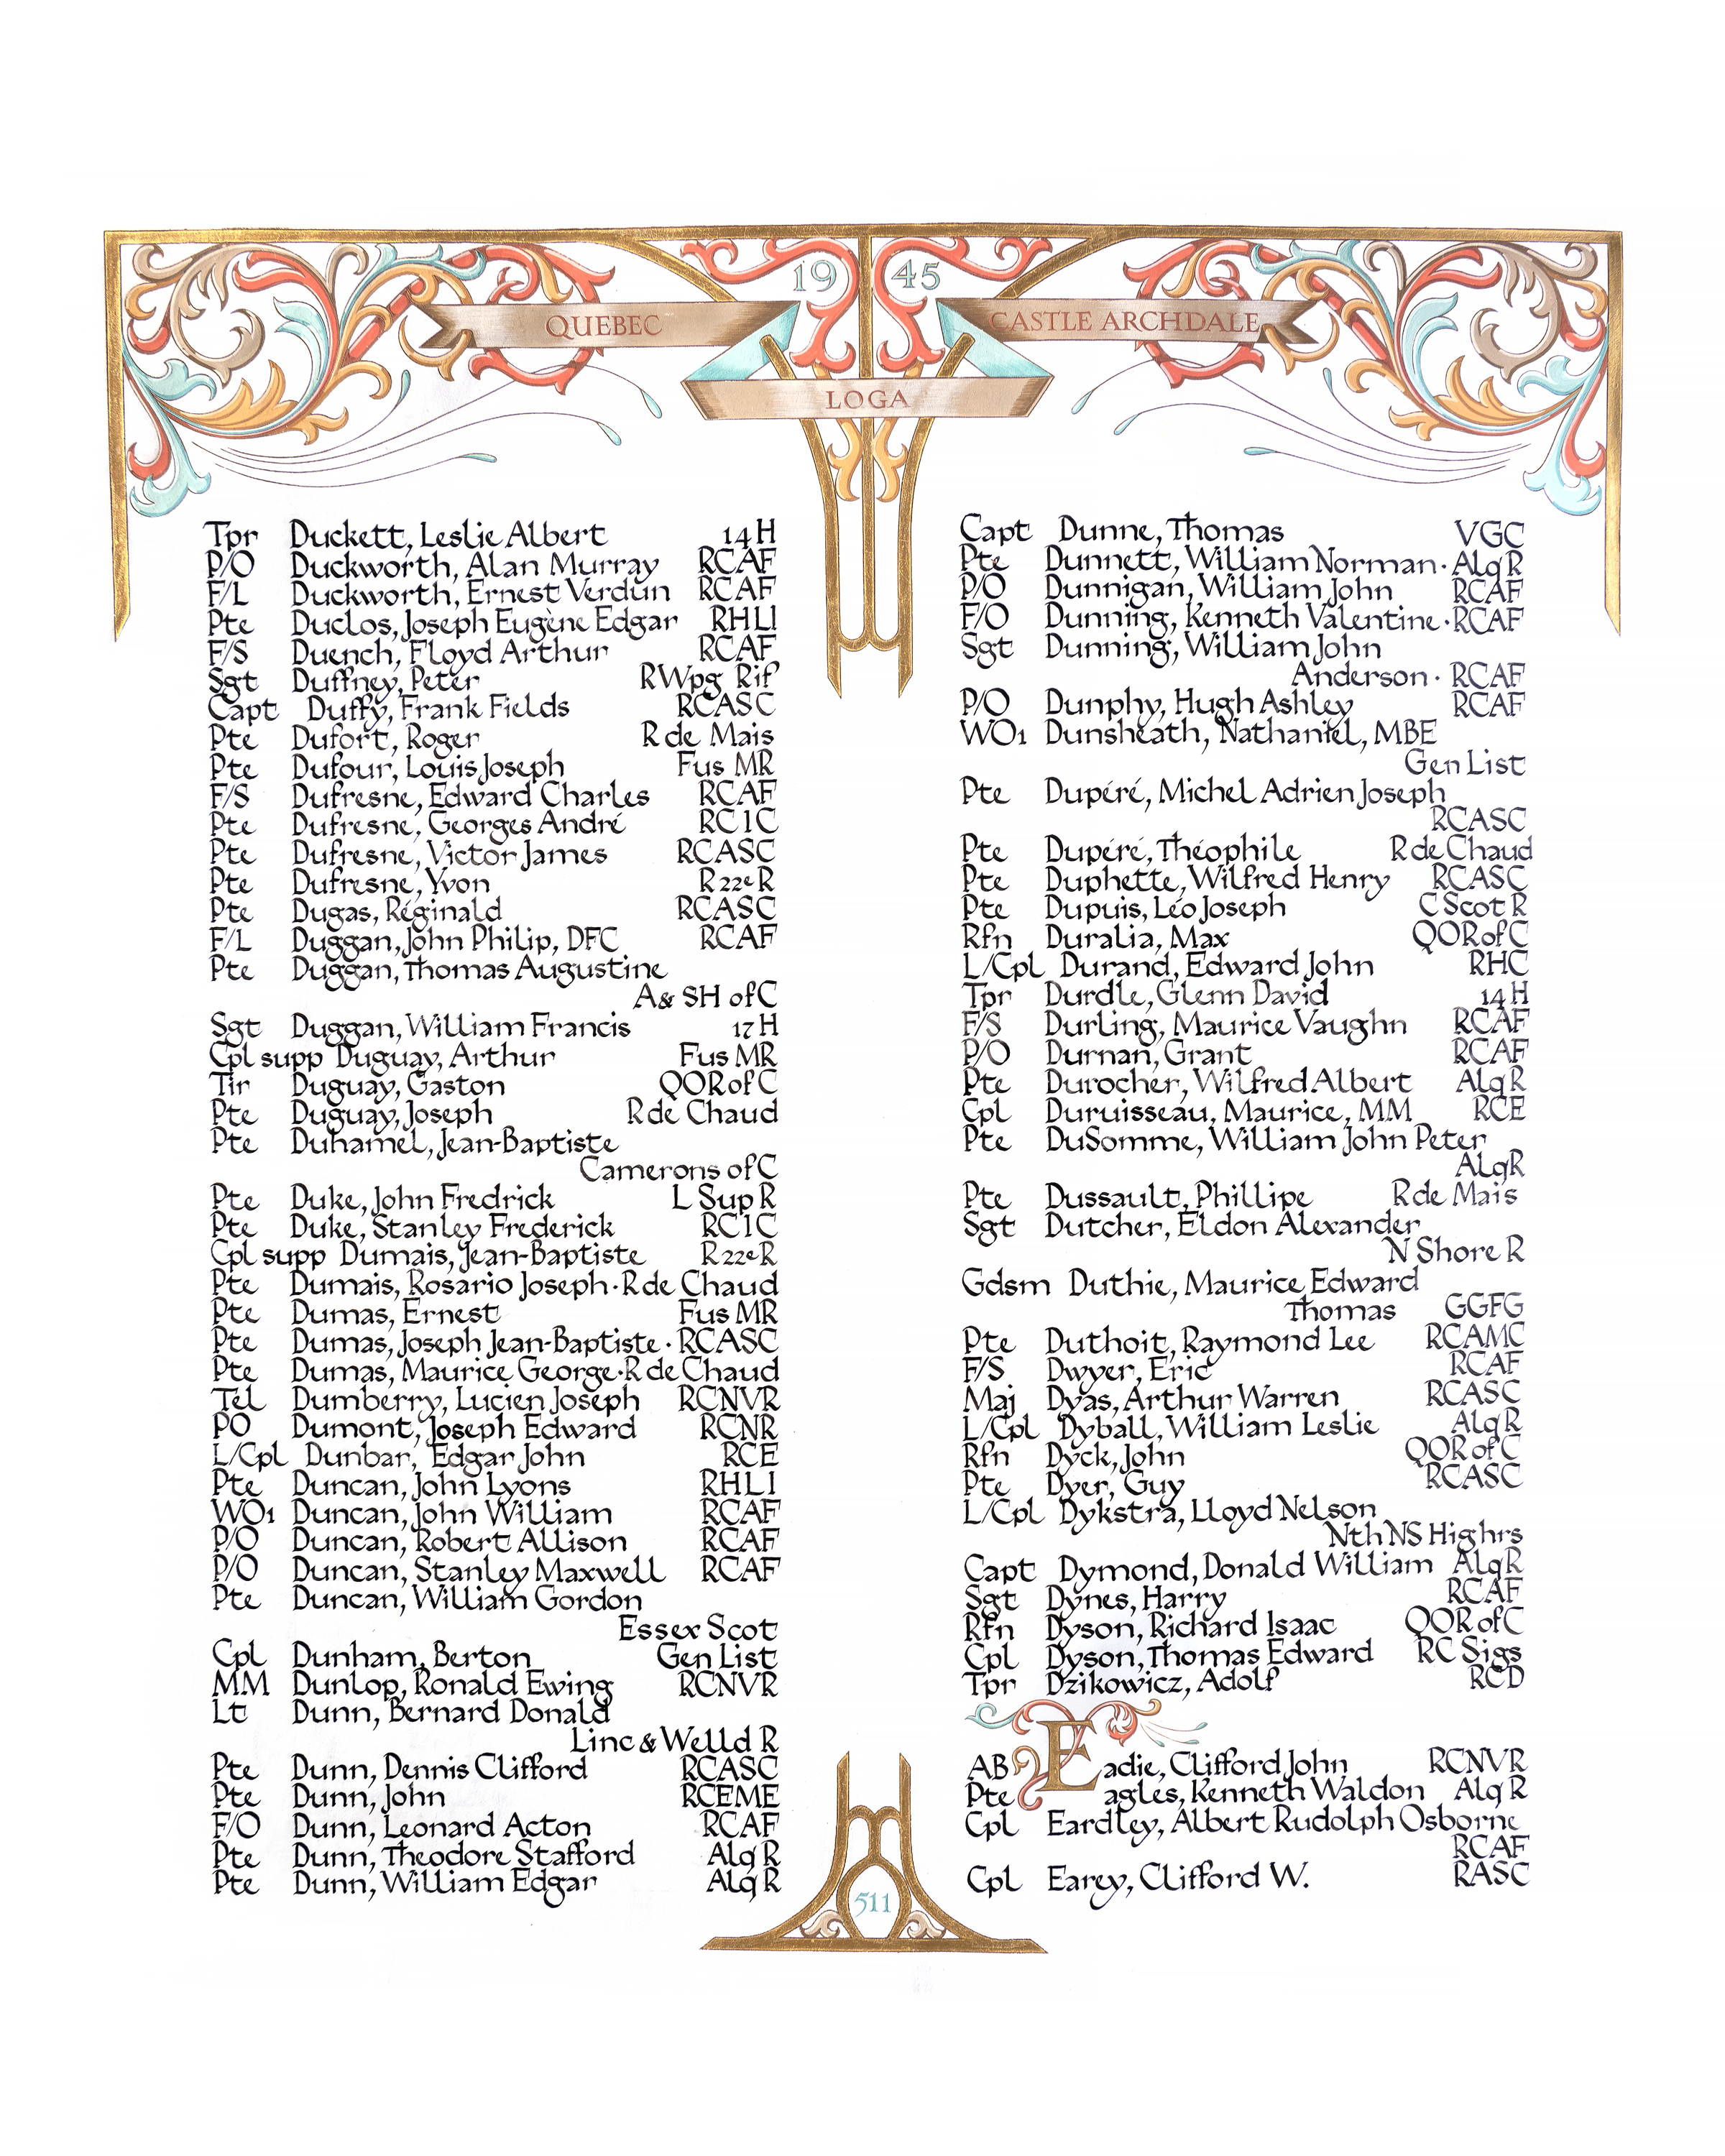 19 45
QUEBEC
CASTLE ARCHDALE
LOGA
Tpr Duckett, Leslie Albert 14 H
P/O Duckworth, Alan Murray RCAF
F/L Duckworth, Ernest Verdun RCAF
Pte Duclos, Joseph Eugène Edgar RHLI
F/S Duench, Floyd Arthur RCAF
Sgt Duffney, Peter RWpg Rif
Capt Duffy, Frank Fields RCASC
Pte Dufort, Roger R de Mais
Pte Dufour, Louis Joseph Fus MR
F/S Dufresne, Edward Charles RCAF
Pte Dufresne, Georges André RCIC
Pte Dufresne, Victor James RCASC
Pte Dufresne, Yvon R 22e R
Pte Dugas, Réginald RCASC
F/L Duggan, John Philip, DFC RCAF
Pte Duggan, Thomas Augustine
A & SH of C
Sgt Duggan, William Francis 17 H
Cpl supp Duguay, Arthur Fus MR
Tir Duguay, Gaston QOR of C
Pte Duguay, Joseph R de Chaud
Pte Duhamel, Jean-Baptiste
Camerons of C
Pte Duke, John Fredrick L Sup R
Pte Duke, Stanley Frederick RCIC
Cpl supp Dumais, Jean-Baptiste R 22e R
Pte Dumais, Rosario Joseph · R de Chaud
Pte Dumas, Ernest Fus MR
Pte Dumas, Joseph Jean-Baptiste · RCASC
Pte Dumas, Maurice George · R de Chaud
Tel Dumberry, Lucien Joseph RCNVR
PO Dumont, Joseph Edward RCNR
L/Cpl Dunbar, Edgar John RCE
Pte Duncan, John Lyons RHLI
WO1 Duncan, John William RCAF
P/O Duncan, Robert Allison RCAF
P/O Duncan, Stanley Maxwell RCAF
Pte Duncan, William Gordon
Essex Scot
Cpl Dunham, Berton Gen List
MM Dunlop, Ronald Ewing RCNVR
Lt Dunn, Bernard Donald
Linc & Welld R
Pte Dunn, Dennis Clifford RCASC
Pte Dunn, John RCEME
F/O Dunn, Leonard Acton RCAF
Pte Dunn, Theodore Stafford Alq R
Pte Dunn, William Edgar Alq R
Capt Dunne, Thomas VGC
Pte Dunnett, William Norman · Alq R
P/O Dunnigan, William John RCAF
F/O Dunning, Kenneth Valentine · RCAF
Sgt Dunning, William John
Anderson · RCAF
P/O Dunphy, Hugh Ashley RCAF
WO1 Dunsheath, Nathaniel, MBE
Gen List
Pte Dupéré, Michel Adrien Joseph
RCASC
Pte Dupéré, Théophile R de Chaud
Pte Duphette, Wilfred Henry RCASC
Pte Dupuis, Léo Joseph C Scot R
Rfn Duralia, Max QOR of C
L/Cpl Durand, Edward John RHC
Tpr Durdle, Glenn David 14 H
F/S Durling, Maurice Vaughn RCAF
P/O Durnan, Grant RCAF
Pte Durocher, Wilfred Albert Alq R
Cpl Duruisseau, Maurice, MM RCE
Pte DuSomme, William John Peter
Alq R
Pte Dussault, Phillipe R de Mais
Sgt Dutcher, Eldon Alexander
N Shore R
Gdsm Duthie, Maurice Edward
Thomas GGFG
Pte Duthoit, Raymond Lee RCAMC
F/S Dwyer, Eric RCAF
Maj Dyas, Arthur Warren RCASC
L/Cpl Dyball, William Leslie Alq R
Rfn Dyck, John QOR of C
Pte Dyer, Guy RCASC
L/Cpl Dykstra, Lloyd Nelson
Nth NS Highrs
Capt Dymond, Donald William Alq R
Sgt Dynes, Harry RCAF
Rfn Dyson, Richard Isaac QOR of C
Cpl Dyson, Thomas Edward RC Sigs
Tpr Dzikowicz, Adolf RCD
AB Eadie, Clifford John RCNVR
Pte agles, Kenneth Waldon Alq R
Cpl Eardley, Albert Rudolph Osborne
RCAF
Cpl Earey, Clifford W. RASC
511